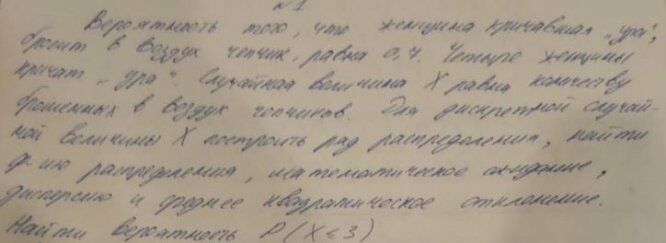 №1
Вероятность того, что женщина кричавшая „ура",
бросит в воздух чепчик, равна 0,4. Четыре женщины
кричат „ура". Случайная величина X равна количеству
брошенных в воздух чепчиков. Для дискретной случай-
ной величины X построить ряд распределения, найти
ф-ию распределения, математическое ожидание,
дисперсию и среднее квадратическое отклонение.
Найти вероятность P(X≤3)